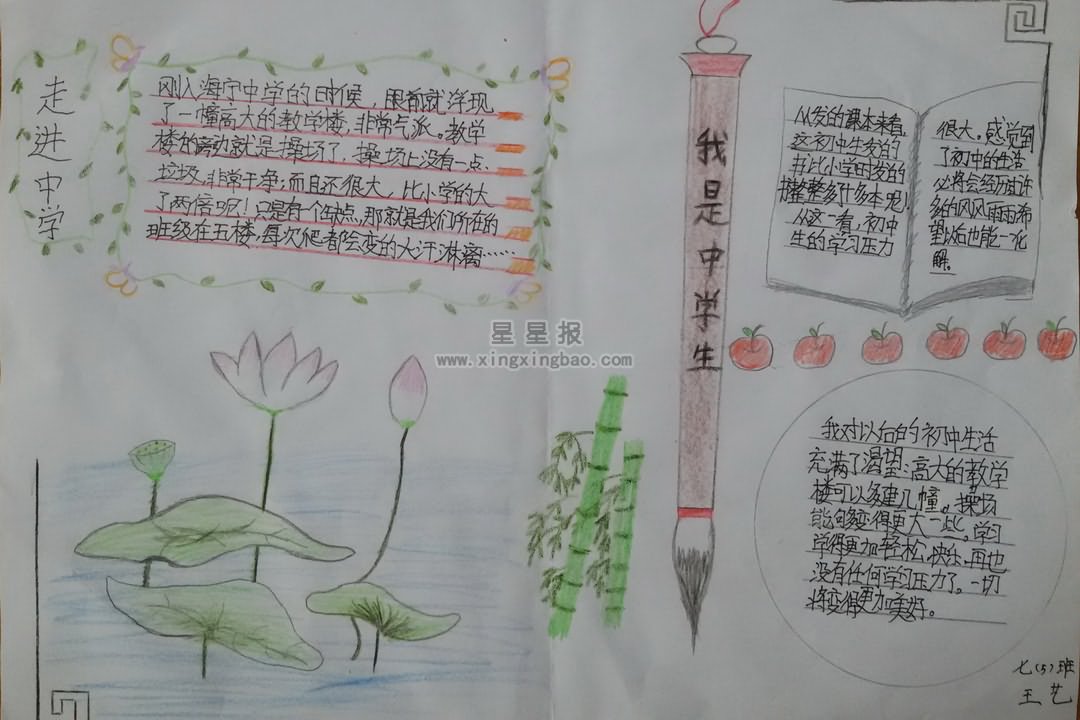 走进中学
刚入海宁中学的时候,眼前就浮现
了一幢高大的教学楼,非常气派。教学
楼的旁边就是操场了,操场上没有一点
垃圾,非常干净;而且还很大,比小学的大
了两倍呢!只是有个缺点,那就是我们所在的
班级在五楼,每次爬都会变的大汗淋漓……
我是中学生
从发的课本来看,
这初中生发的
书比小学时发的
整整多了十多本呢!
从这一看,初中
生的学习压力
很大。感觉到
了初中的生活
必将会经历许许
多多的风风雨雨,希
望以后也能一一化
解。
星星报
www.xingxingbao.com
我对以后的初中生活
充满了渴望:高大的教学
楼可以多建几幢。操场
能够变得更大一些,学习
学得更加轻松,快乐,再也
没有任何学习压力了。一切
将变得更加美好。
七(5)班
王艺